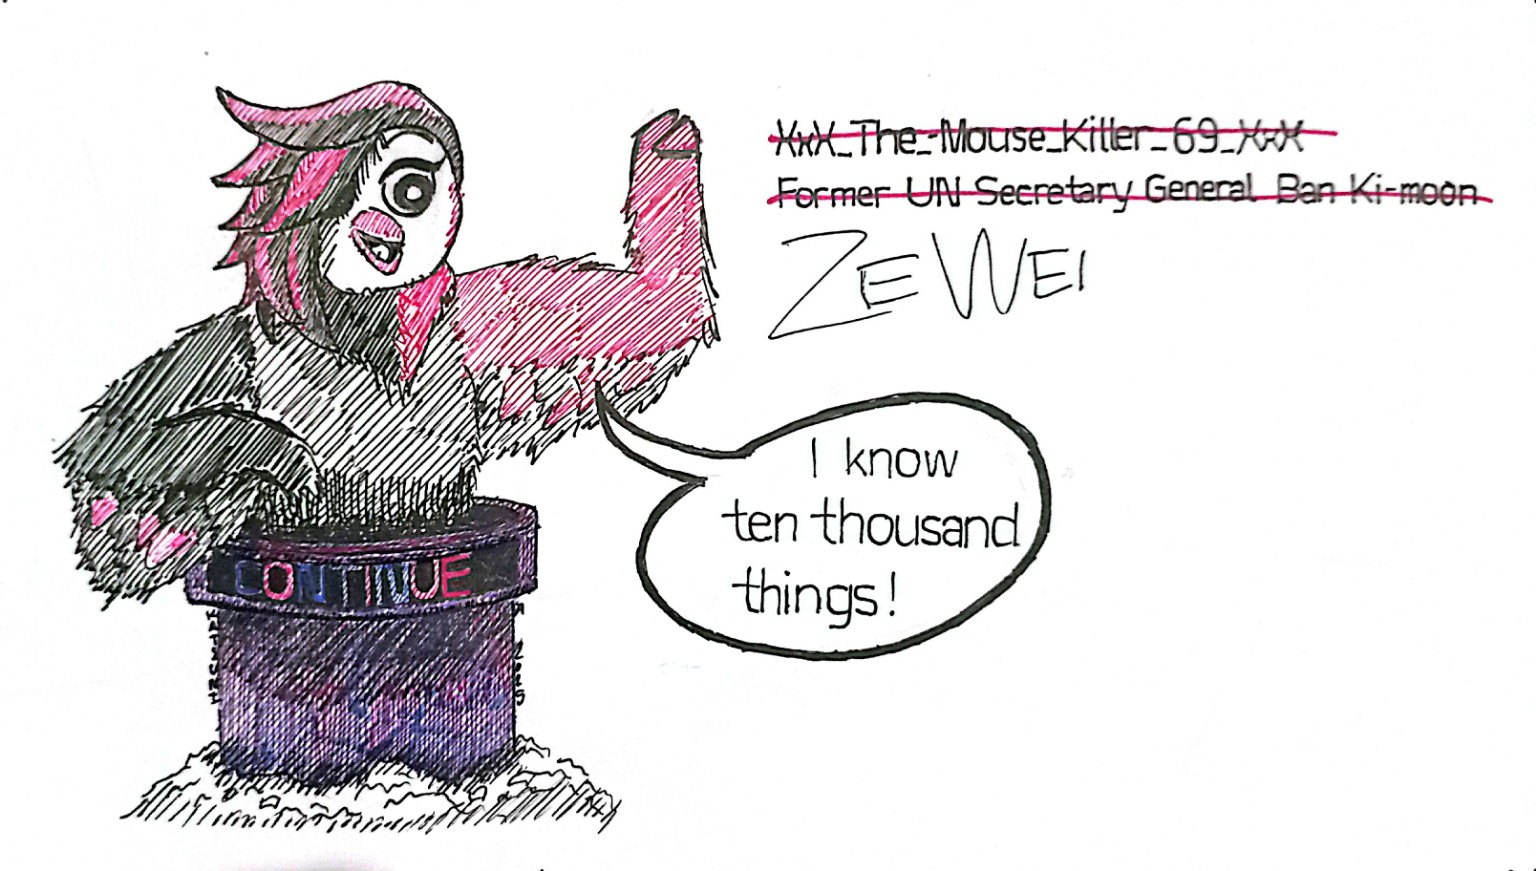 XxX_The_Mouse_Killer_69_XxX
Former UN Secretary General Ban Ki-moon
ZEWEI
I know
ten thousand
things!
CONTINUE